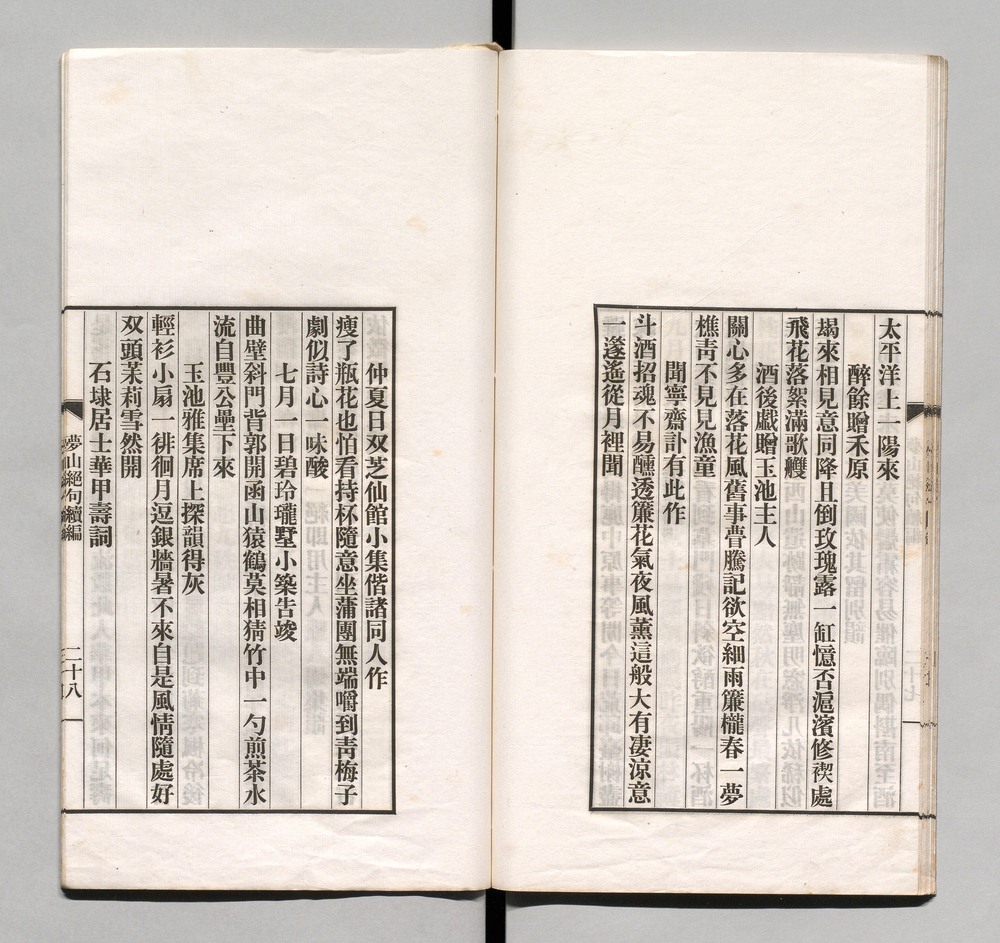 太平洋上一陽來
醉餘贈禾原
朅來相見意同降且倒玫瑰露一缸憶否滬濱修禊處
飛花落絮滿歌艭
酒後戯贈玉池主人
關心多在落花風舊事瞢騰記欲空細雨簾櫳春一夢
樵靑不見見漁童
聞寧齋訃有此作
斗酒招魂不易醺透簾花氣夜風薰這般大有凄涼意
一邃遙從月裡聞
仲夏日双芝仙館小集偕諸同人作
瘦了瓶花也怕看持杯隨意坐蒲團無端嚼到靑梅子
劇似詩心一味酸
七月一日碧玲瓏墅小築告竣
曲壁斜門背郭開函山猿鶴莫相猜竹中一勺煎茶水
流自豐公壘下來
玉池雅集席上探韻得灰
輕衫小扇一徘徊月逗銀牆暑不來自是風情隨處好
双頭茉莉雪然開
石埭居士華甲壽詞
夢山絕句續編
二十八